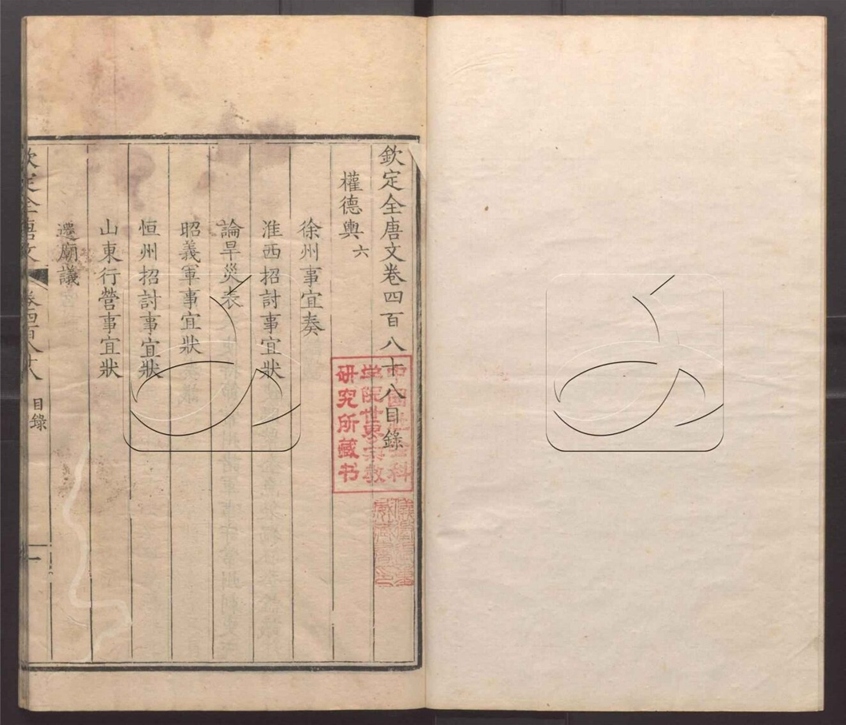 欽定全唐文卷四百八十八目錄
權德輿 六
徐州事宜奏
淮西招討事宜狀
論旱災表
昭義軍事宜狀
恒州招討事宜狀
山東行營事宜狀
遷廟議
欽定全唐文 卷四百八十八 目錄 一
中國社会科
学院世界宗教
研究所藏书